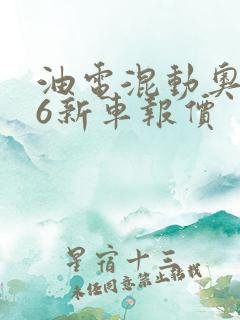 油電混動奧
6新車報價
星宿十三
未经同意禁止转载